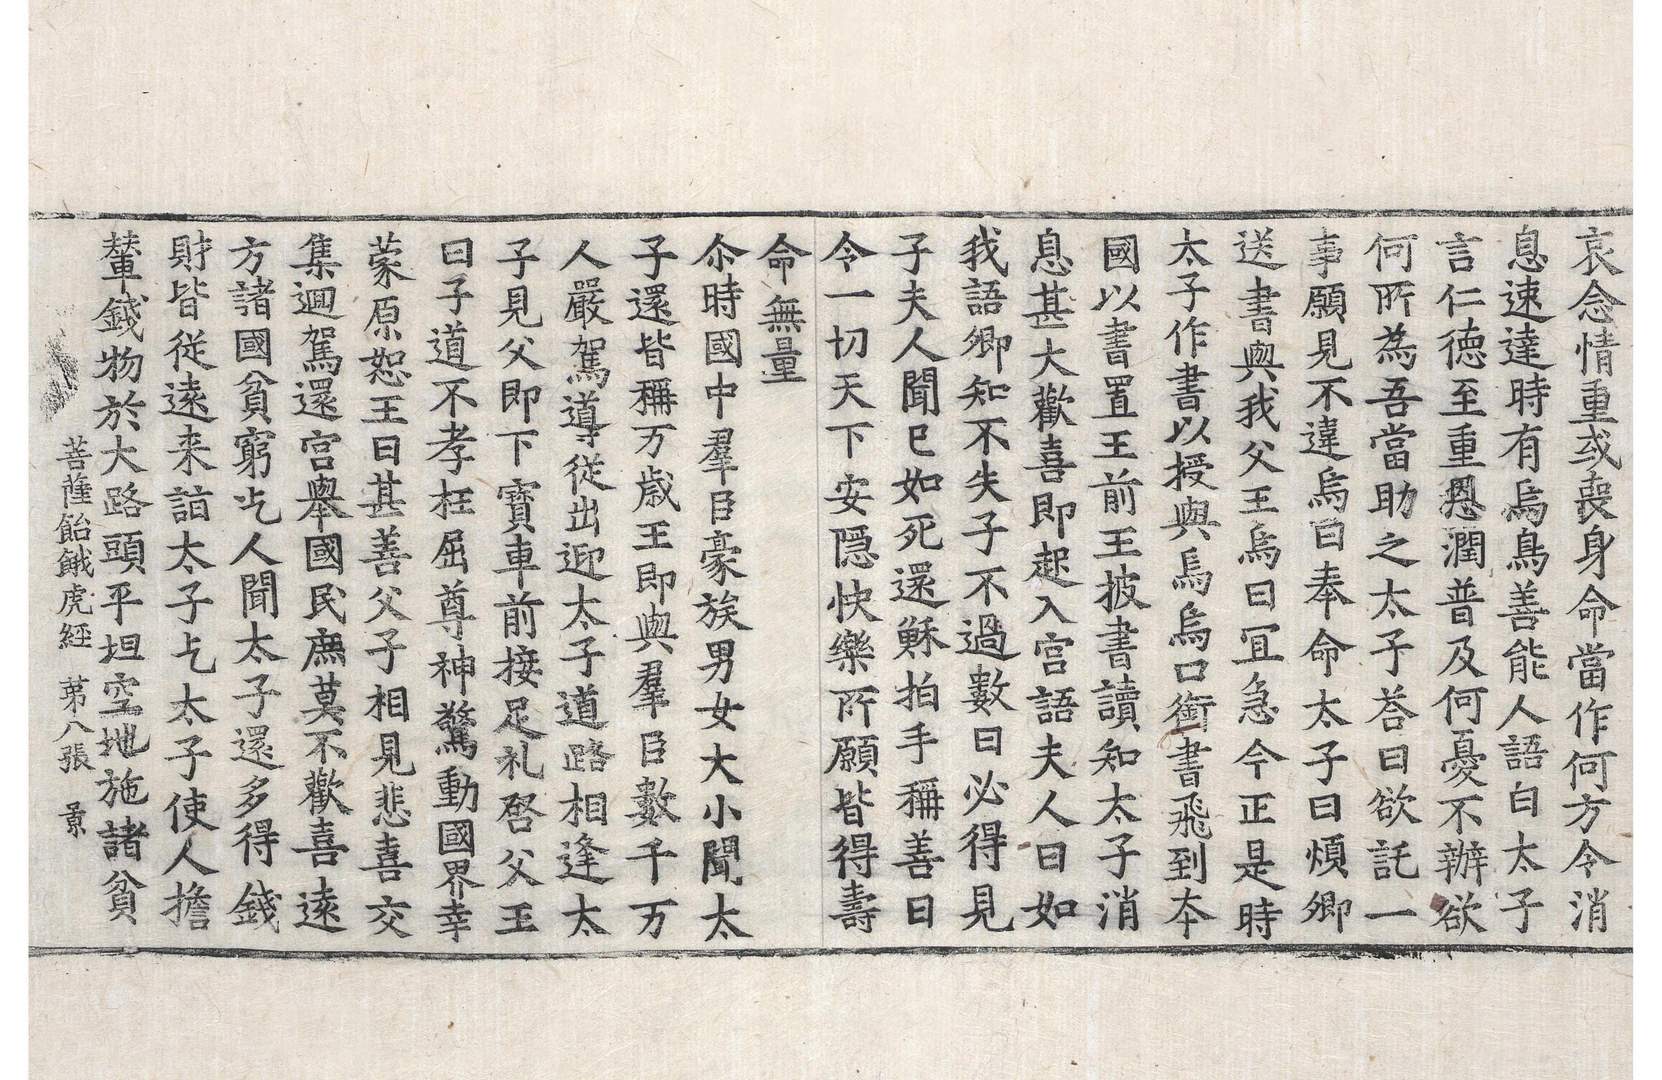 哀念情重或喪身命當作何方令消
息速達時有烏鳥善能人語白太子
言仁德至重恩潤普及何憂不辦欲
何所為吾當助之太子荅曰欲託一
事願見不違烏曰奉命太子曰煩卿
送書與我父王烏曰冝急今正是時
太子作書以授與烏烏口銜書飛到本
國以書置王前王披書讀知太子消
息甚大歡喜即起入宮語夫人曰如
我語卿知不失子不過數日必得見
子夫人聞已如死還穌拍手稱善曰
令一切天下安隱快樂所願皆得壽
命無量
尒時國中羣臣豪族男女大小聞太
子還皆稱万歲王即與羣臣數千万
人嚴駕導從出迎太子道路相逢太
子見父即下寶車前接足礼啓父王
曰子道不孝枉屈尊神驚動國界幸
蒙原恕王曰甚善父子相見悲喜交
集迴駕還宮舉國民庶莫不歡喜遠
方諸國貧窮乞人聞太子還多得錢
財皆從遠来詣太子乞太子使人擔
輦錢物於大路頭平坦空地施諸貧
菩薩飴餓虎經 苐八張 景